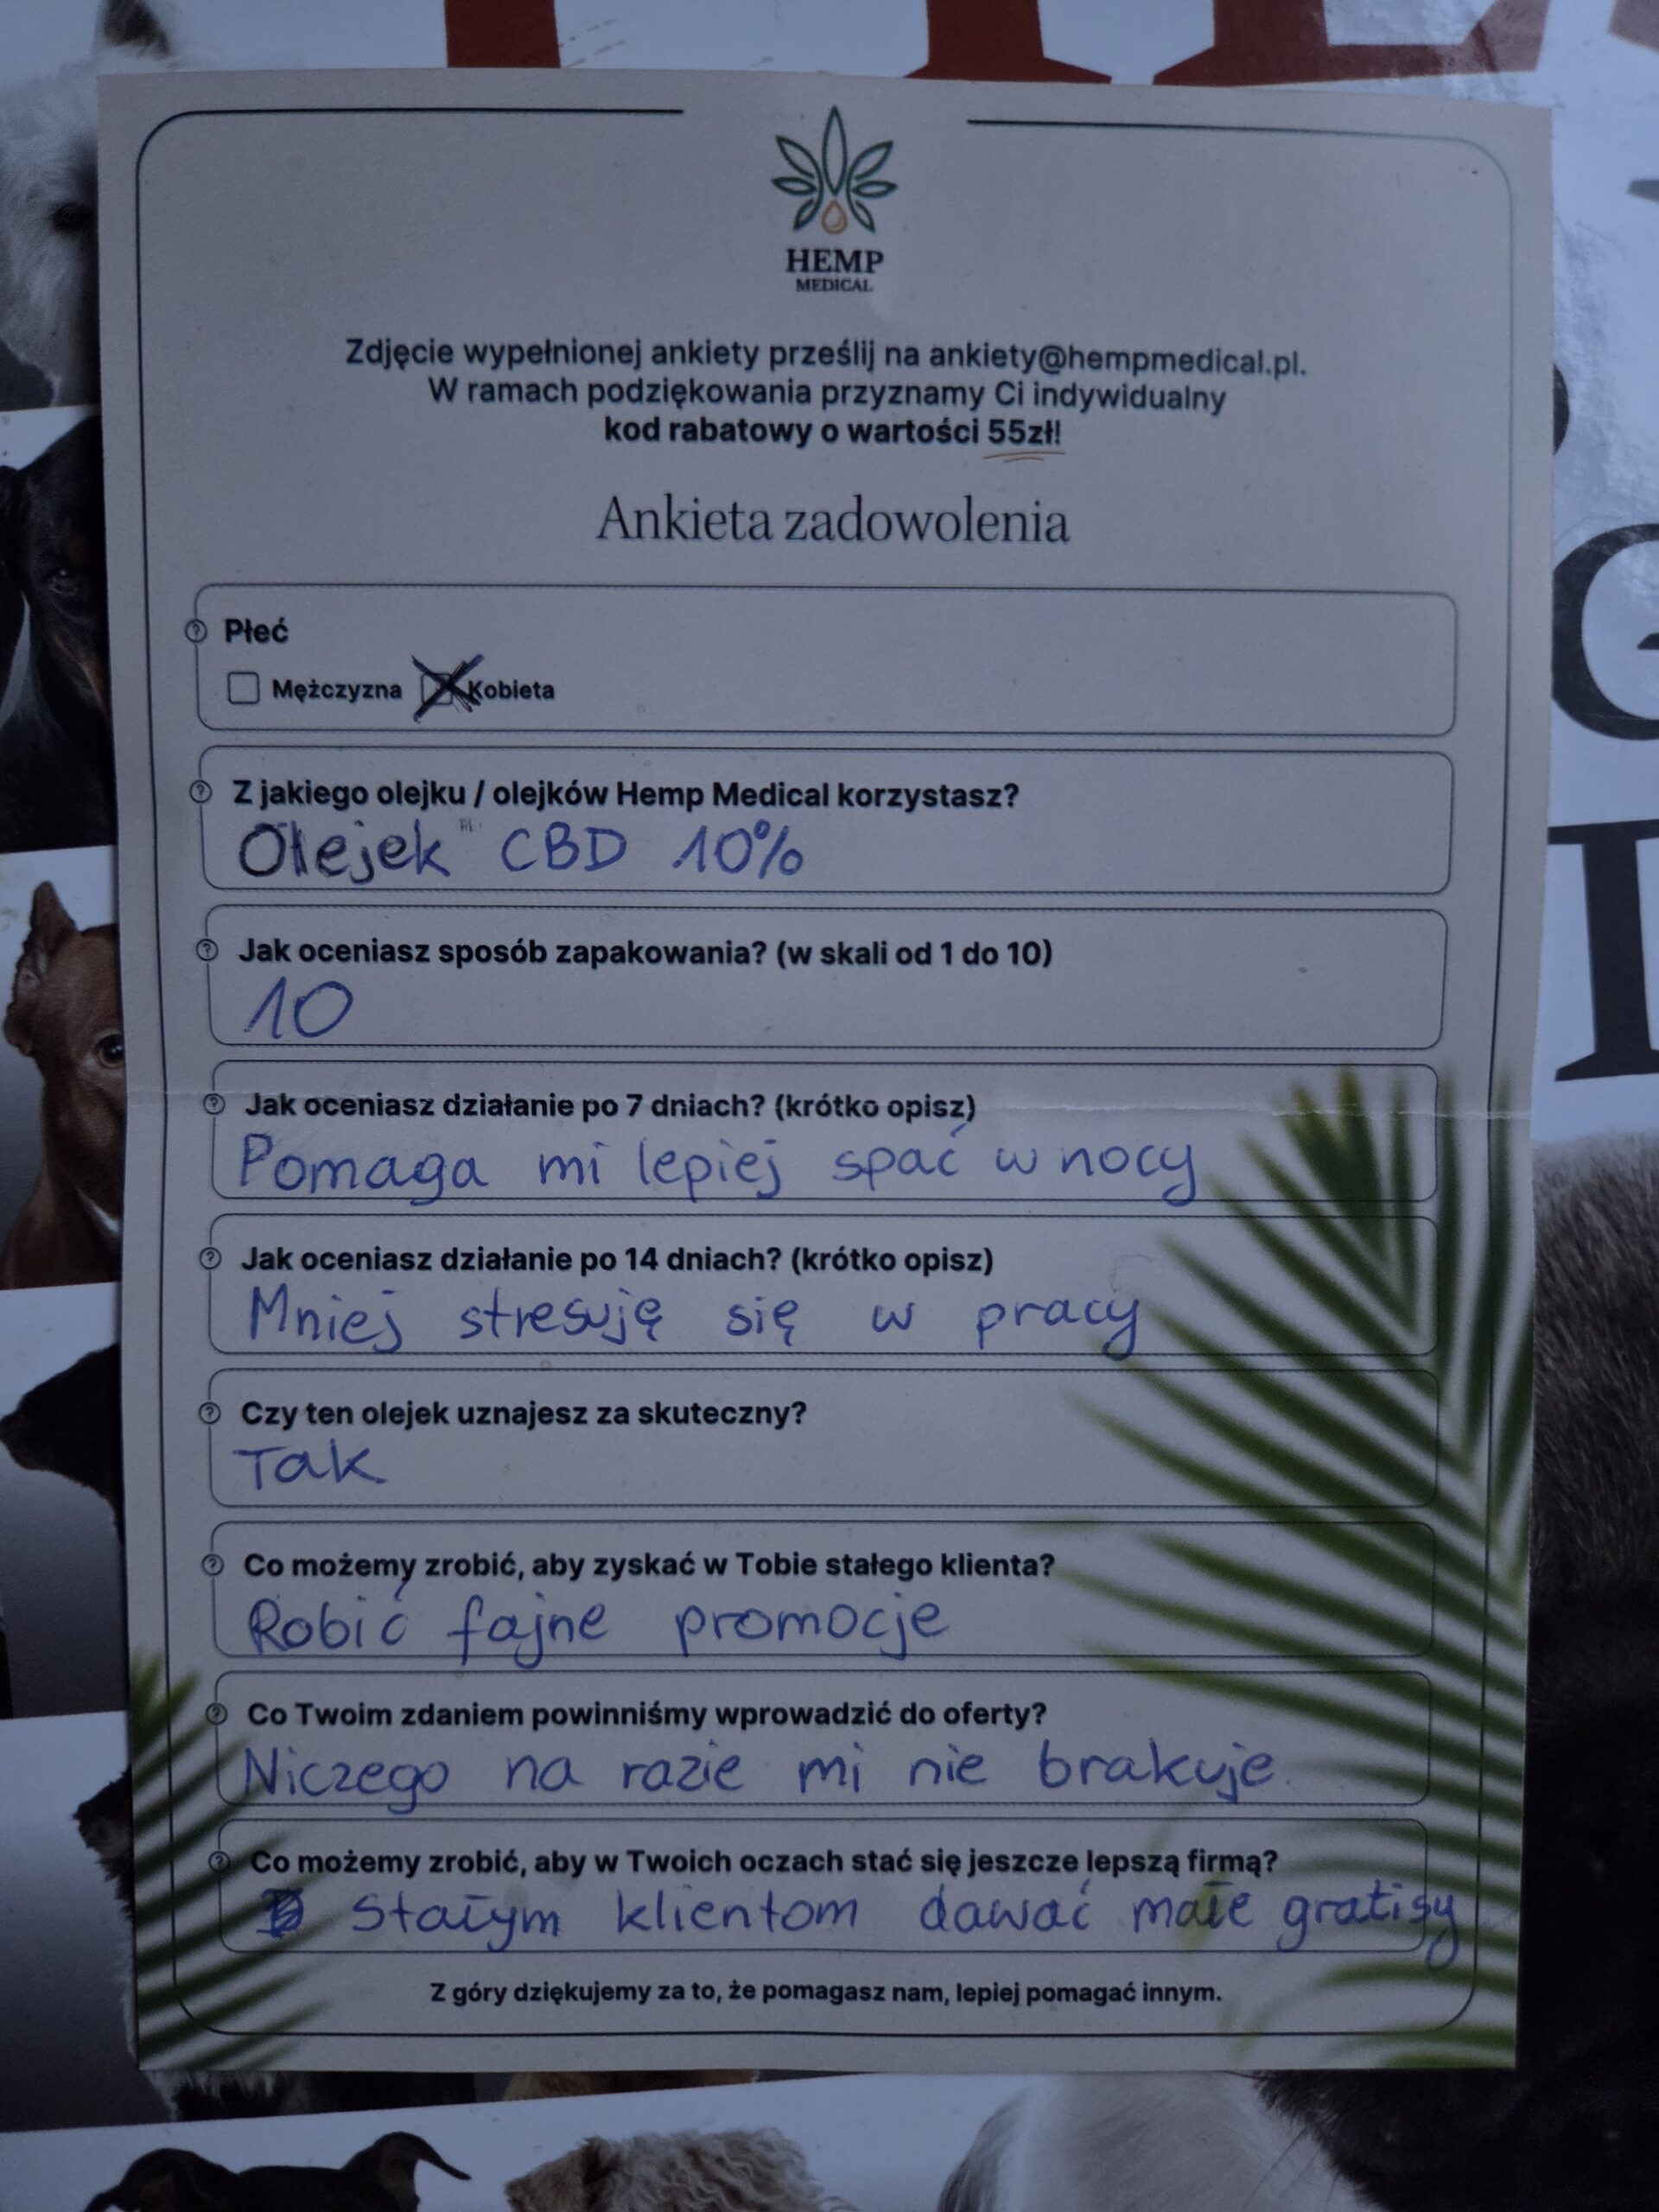 HEMP
MEDICAL
Zdjęcie wypełnionej ankiety prześlij na ankiety@hempmedical.pl.
W ramach podziękowania przyznamy Ci indywidualny
kod rabatowy o wartości 55zł!
Ankieta zadowolenia
Płeć
Mężczyzna Kobieta
Z jakiego olejku / olejków Hemp Medical korzystasz?
Olejek CBD 10%
Jak oceniasz sposób zapakowania? (w skali od 1 do 10)
10
Jak oceniasz działanie po 7 dniach? (krótko opisz)
Pomaga mi lepiej spać w nocy
Jak oceniasz działanie po 14 dniach? (krótko opisz)
Mniej stresuję się w pracy
Czy ten olejek uznajesz za skuteczny?
Tak
Co możemy zrobić, aby zyskać w Tobie stałego klienta?
Robić fajne promocje
Co Twoim zdaniem powinniśmy wprowadzić do oferty?
Niczego na razie mi nie brakuje.
Co możemy zrobić, aby w Twoich oczach stać się jeszcze lepszą firmą?
Stałym klientom dawać małe gratisy
Z góry dziękujemy za to, że pomagasz nam, lepiej pomagać innym.